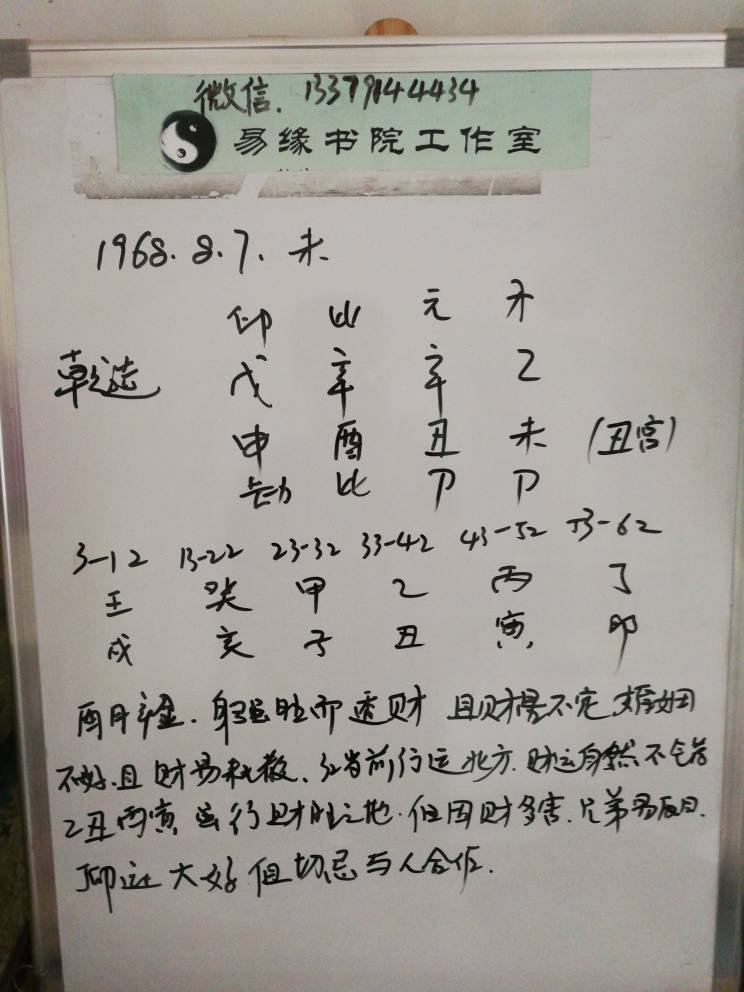 微信. 13379144434
易缘书院工作室
1968. 8. 7. 未
印 比 元 才
乾造 戊 辛 辛 乙
申 酉 丑 未 (丑宫)
劫 比 卩 卩
3-12 13-22 23-32 33-42 43-52 53-62
壬 癸 甲 乙 丙 丁
戌 亥 子 丑 寅 卯
酉月辛金. 身强旺而透财 且财 不 婚姻
不好且财易 散. 32岁前行运北方. 财运自然不错
乙丑丙寅 行财旺之地. 但因财多害. 兄弟易反目.
丁卯运大好但切忌与人合作.